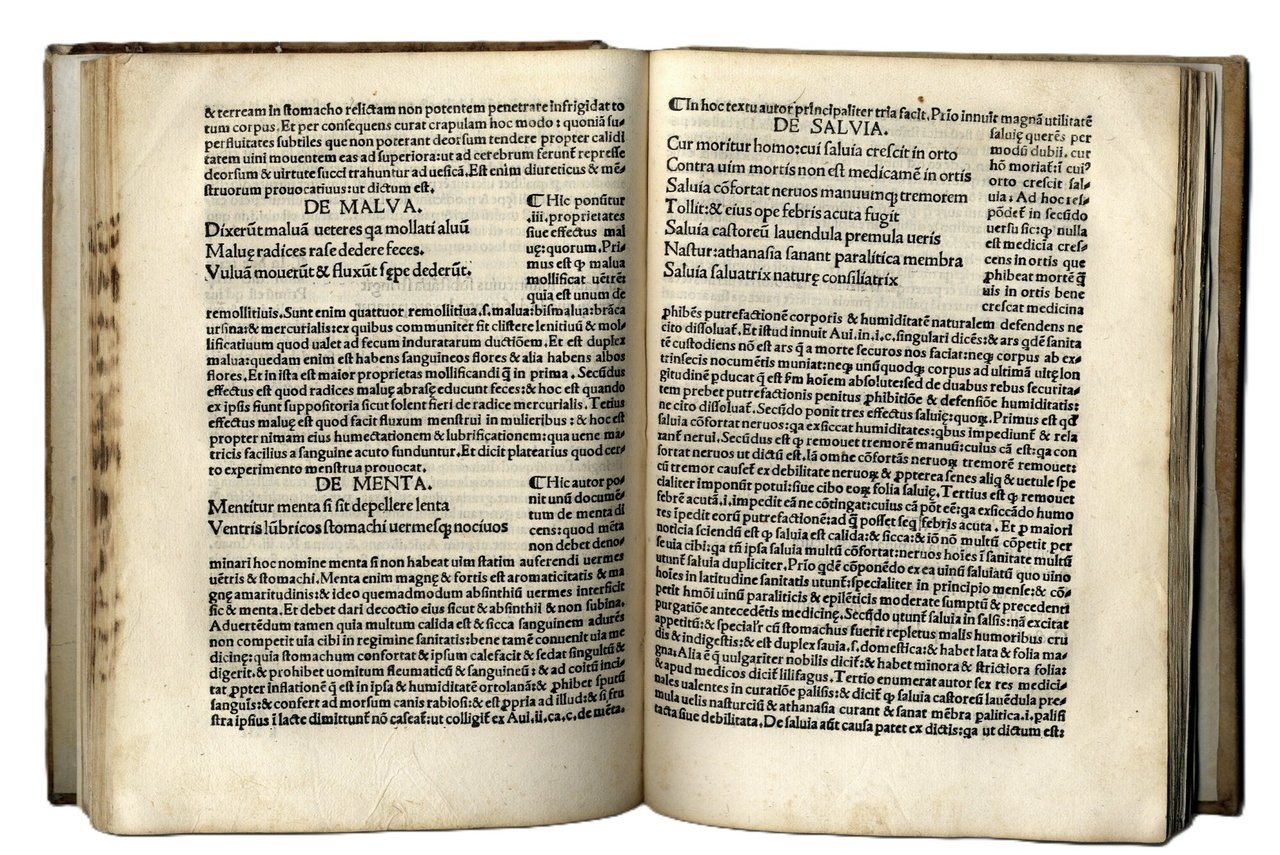 & terream in stomacho relictam non potentem penetrare infrigidat to
tum corpus. Et per consequens curat crapulam hoc modo: quoniã su⸗
perfluitates subtiles que non poterant deorsum tendere propter calidi
tatem uini mouentem eas ad superiora: ut ad cerebrum ferunt̃ represse
deorsum & uirtute succi trahuntur ad uesicã. Est enim diureticus & mẽ⸗
struorum prouocatiuus: ut dictum est.
DE MALVA.
Dixerũt maluã ueteres qa mollati aluũ
Maluę radices rase dedere feces.
Vuluã mouerũt & fluxũt sępe dederũt.
¶ Hic ponũtur
.iii. proprietates
siue effectus mal
uę: quorum. Pri⸗
mus est ꝙ malua
mollificat uẽtrẽ:
quia est unum de
remollitiuis. Sunt enim quattuor remollitiua. s. malua: bismalua: brãca
ursina: & mercurialis: ex quibus communiter fit clistere lenitiuũ & mol⸗
lificatiuum quod ualet ad fecum induratarum ductiõem. Et est duplex
malua: quedam enim est habens sanguineos flores & alia habens albos
flores. Et in ista est maior proprietas mollificandi q̃ in prima. Secũdus
effectus est quod radices maluę abrasę educunt feces: & hoc est quando
ex ipsis fiunt suppositoria sicut solent fieri de radice mercurialis. Tertius
effectus maluę est quod facit fluxum menstrui in mulieribus: & hoc est
propter nimam eius humectationem & lubrificationem: qua uene ma⸗
tricis facilius a sanguine acuto funduntur. Et dicit platearius quod cer⸗
to experimento menstrua prouocat.
DE MENTA.
Mentitur menta si sit depellere lenta
Ventris lũbricos stomachi uermesqꝫ nociuos
¶ Hic autor po⸗
nit unũ documẽ⸗
tum de menta di
cens: quod mẽta
non debet deno⸗
minari hoc nomine menta si non habeat uim statim auferendi uermes
uẽtris & stomachi. Menta enim magnę & fortis est aromaticitatis & ma
gnę amaritudinis: & ideo quemadmodum absinthiũ uermes interficit
sic & menta. Et debet dari decoctio eius sicut & absinthii & non subina.
Aduertẽdum tamen quia multum calida est & sicca sanguinem adurẽs
non competit uia cibi in regimine sanitatis: bene tamẽ conuenit uia me
dicinę: quia stomachum confortat & ipsum calefacit & sedat singultũ &
digerit. & prohibet uomitum fleumaticũ & sanguineũ: & ad coitũ inci⸗
tat ꝓpter inflationẽ q̃ est in ipsa & humiditatẽ ortolanã: & ꝓhibet sputũ
sanguĩs: & confert ad morsum canis rabiosi: & est ꝓpria ad illud: & si fru
stra ipsius ĩ lacte dimittunt̃ nõ caseat̃: ut colligit̃ ex Aui. ii. ca. c. de mẽta.
¶ In hoc textu autor principaliter tria facit. Prĩo innuit magnã utilitatẽ
DE SALVIA.
Cur moritur homo: cui saluia crescit in orto
Contra uim mortis non est medicamẽ in ortis
Saluia cõfortat neruos manuumqꝫ tremorem
Tollit: & eius ope febris acuta fugit
Saluia castoreũ lauendula premula ueris
Nastur: athanasia sanant paralitica membra
Saluia saluatrix naturę consiliatrix
saluię querẽs per
modũ dubii. cur
hõ moriat̃: ĩ cui⁹
orto crescit sal⸗
uia; Ad hoc res⸗
põdet̃ in secũdo
uersu sic: ꝙ nulla
est medicia cres⸗
cens in ortis que
ꝓhibeat mortẽ q̃
uis in ortis bene
crescat medicina
ꝓhibẽs putrefactionẽ corporis & humiditatẽ naturalem defendens ne
cito dissoluat̃. Et istud innuit Aui. in. i. c. singulari dicẽs: & ars qdẽ sanita
tẽ custodiens nõ est ars q̃ a morte securos nos faciat: neqꝫ corpus ab ex⸗
trinsecis nocumẽtis muniat: neqꝫ unũquodqꝫ corpus ad ultimã ultę lon
gitudinẽ ꝑducat q̃ est s̃m hoĩem absolute: sed de duabus rebus securita⸗
tem prebet putrefactionis penitus ꝓhibitiõe & defensiõe humiditatis:
ne cito dissoluat̃. Secũdo ponit tres effectus saluię: quoꝝ. Primus est qd
saluia cõfortat neruos: qa exsiccat humiditates: qbus impediunt̃ & rela
xant̃ nerui. Secũdus est ꝙ remouet tremorẽ manuũ: cuius cã est: qa con
fortat neruos ut dictũ est. Iã omne cõfortãs neruoꝝ tremorẽ remouet:
cũ tremor causet̃ ex debilitate neruoꝝ & ꝓpterea senes aliq & uetule spe
cialiter imponunt potui: siue cibo eoꝝ folia saluię. Tertius est ꝙ remouet
febrẽ acutã. i. impedit eã ne cõtingat: cuius cã põt eẽ: qa exsiccãdo humo
res ĩpedit eorũ putrefactionẽ: ad q̃ posset seq febris acuta. Et ꝓ maiori
noticia sciendũ est ꝙ saluia est calida: & sicca: & iõ nõ multũ cõpetit per
se uia cibi: qa tñ ipsa saluia multũ cõfortat: neruos hoĩes ĩ sanitate multũ
utunt̃ saluia dupliciter. Prĩo qdẽ cõponẽdo ex ea uinũ saluiatũ quo uino
hoĩes in latitudine sanitatis utunt̃: specialiter in principio mense: & cõ⸗
petit hmõi uinũ paraliticis & epilẽticis moderate sumptũ & precedenti
purgatiõe antecedẽtis medicinę. Secũdo utunt̃ saluia in salsis: nã excitat
appetitũ: & specialr̃ cũ stomachus fuerit repletus malis humoribus cru
dis & indigestis: & est duplex sauia. s. domestica: & habet lata & folia ma⸗
gna: Alia ẽ q̃ uulgariter nobilis dicit̃: & habet minora & strictiora folia:
& apud medicos dicit̃ lilifagus. Tertio enumerat autor sex res medici⸗
nales ualentes in curatiõe palisis: & dicit̃ ꝙ saluia castoreũ lauẽdula pre⸗
mula uelis nasturciũ & athanasia curant & sanat mẽbra palitica. i. palisi
tacta siue debilitata. De saluia aũt causa patet ex dictis: qa ut dictum est: